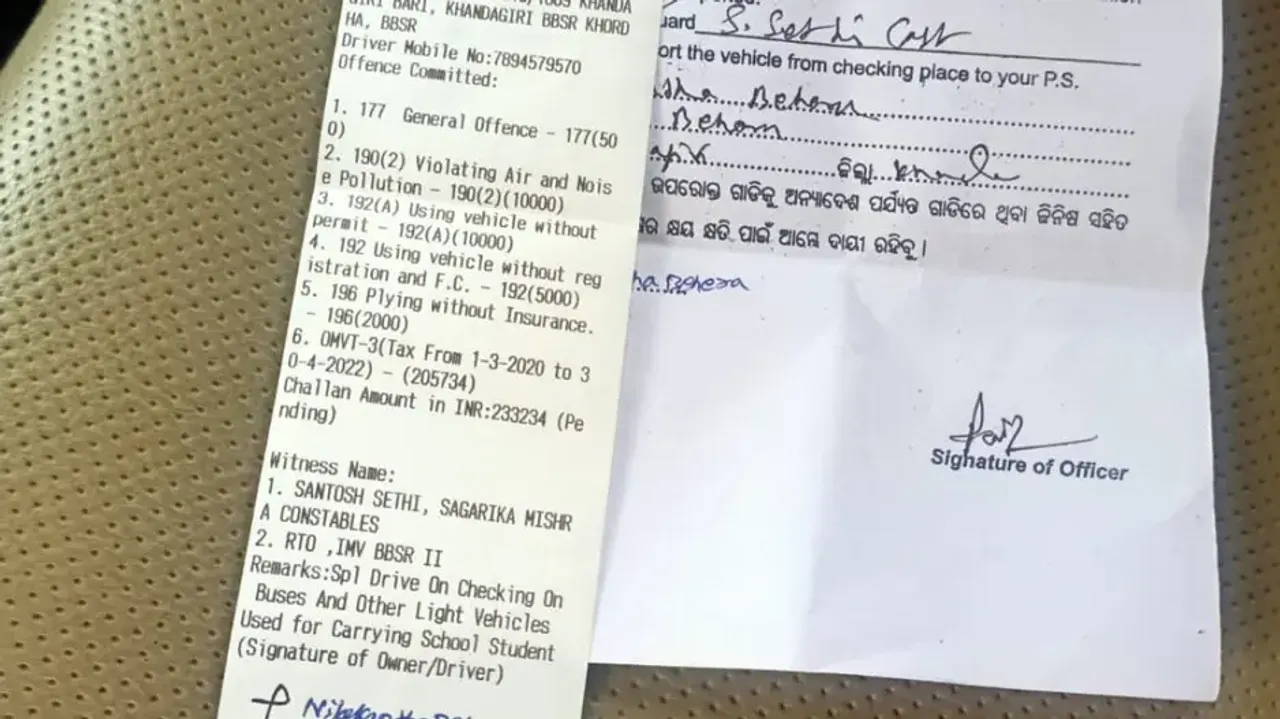 GIRI BARI, KHANDAGIRI BBSR KHORD
HA, BBSR
Driver Mobile No:7894579570
Offence Committed:
1. 177 General Offence - 177(50
0)
2. 190(2) Violating Air and Nois
e Pollution - 190(2)(10000)
3. 192(A) Using vehicle without
permit - 192(A)(10000)
4. 192 Using vehicle without reg
istration and F.C. - 192(5000)
5. 196 Plying without Insurance.
- 196(2000)
6. OMVT-3(Tax From 1-3-2020 to 3
0-4-2022) - (205734)
Challan Amount in INR:233234 (Pe
nding)
Witness Name:
1. SANTOSH SETHI, SAGARIKA MISHR
A CONSTABLES
2. RTO ,IMV BBSR II
Remarks:Spl Drive On Checking On
Buses And Other Light Vehicles
Used for Carrying School Student
(Signature of Owner/Driver)
uard S. Sethi
ort the vehicle from checking place to your P.S.
Behera
ଜିଲ୍ଲା
ଉପରୋକ୍ତ ଗାଡିକୁ ଅନ୍ୟାଦେଶ ପର୍ଯ୍ୟନ୍ତ ଗାଡିରେ ଥିବା ଜିନିଷ ସହିତ
କ୍ଷୟ କ୍ଷତି ପାଇଁ ଆମ୍ଭେ ଦାୟୀ ରହିବୁ।
Behera
Signature of Officer